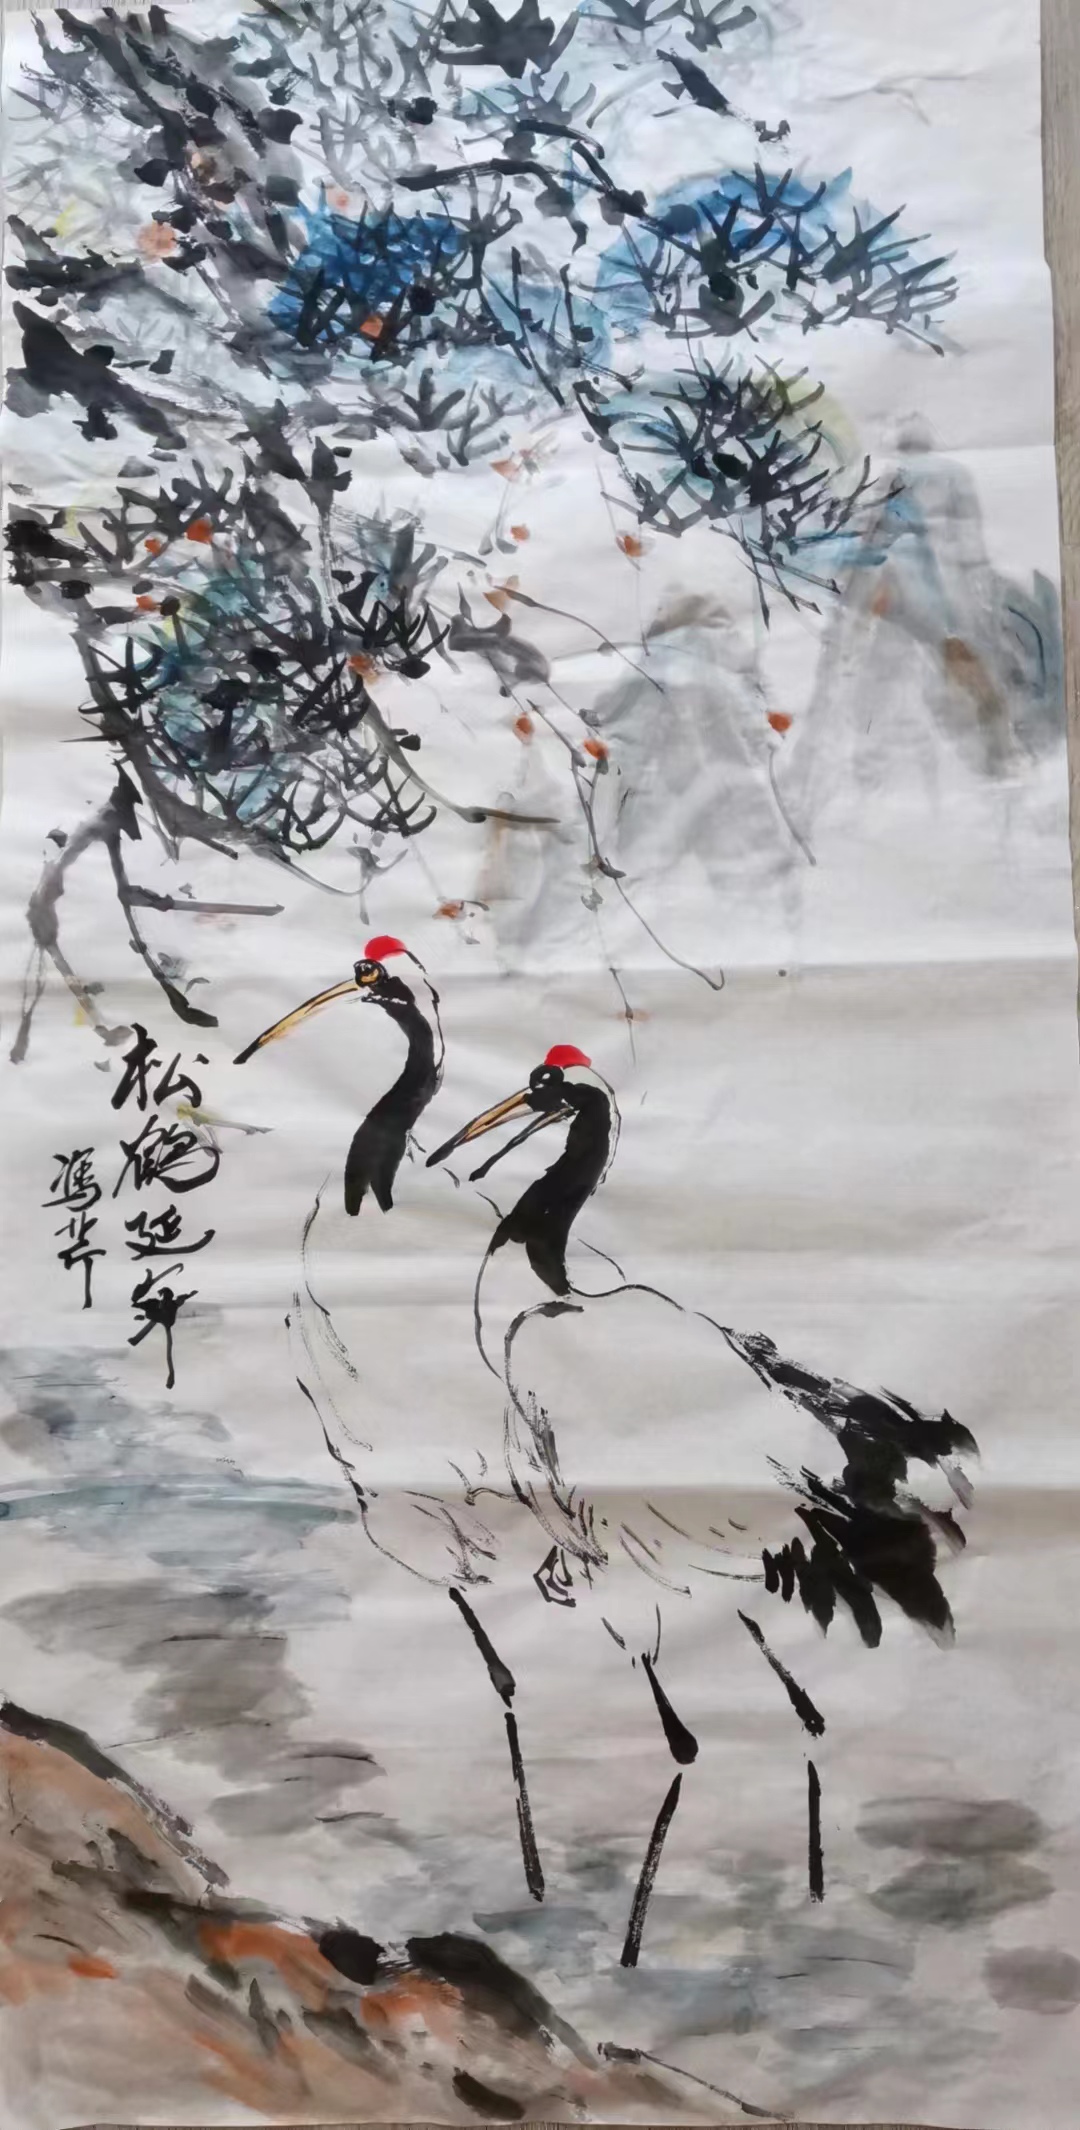 松鹤延年
冯芹